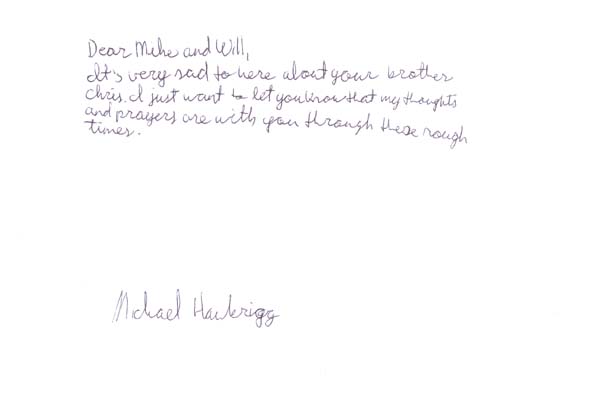 Dear Mike and Will,
It's very sad to here about your brother
Chris. I just want to let you know that my thoughts
and prayers are with you through these rough
times.
Michael Hawkrigg